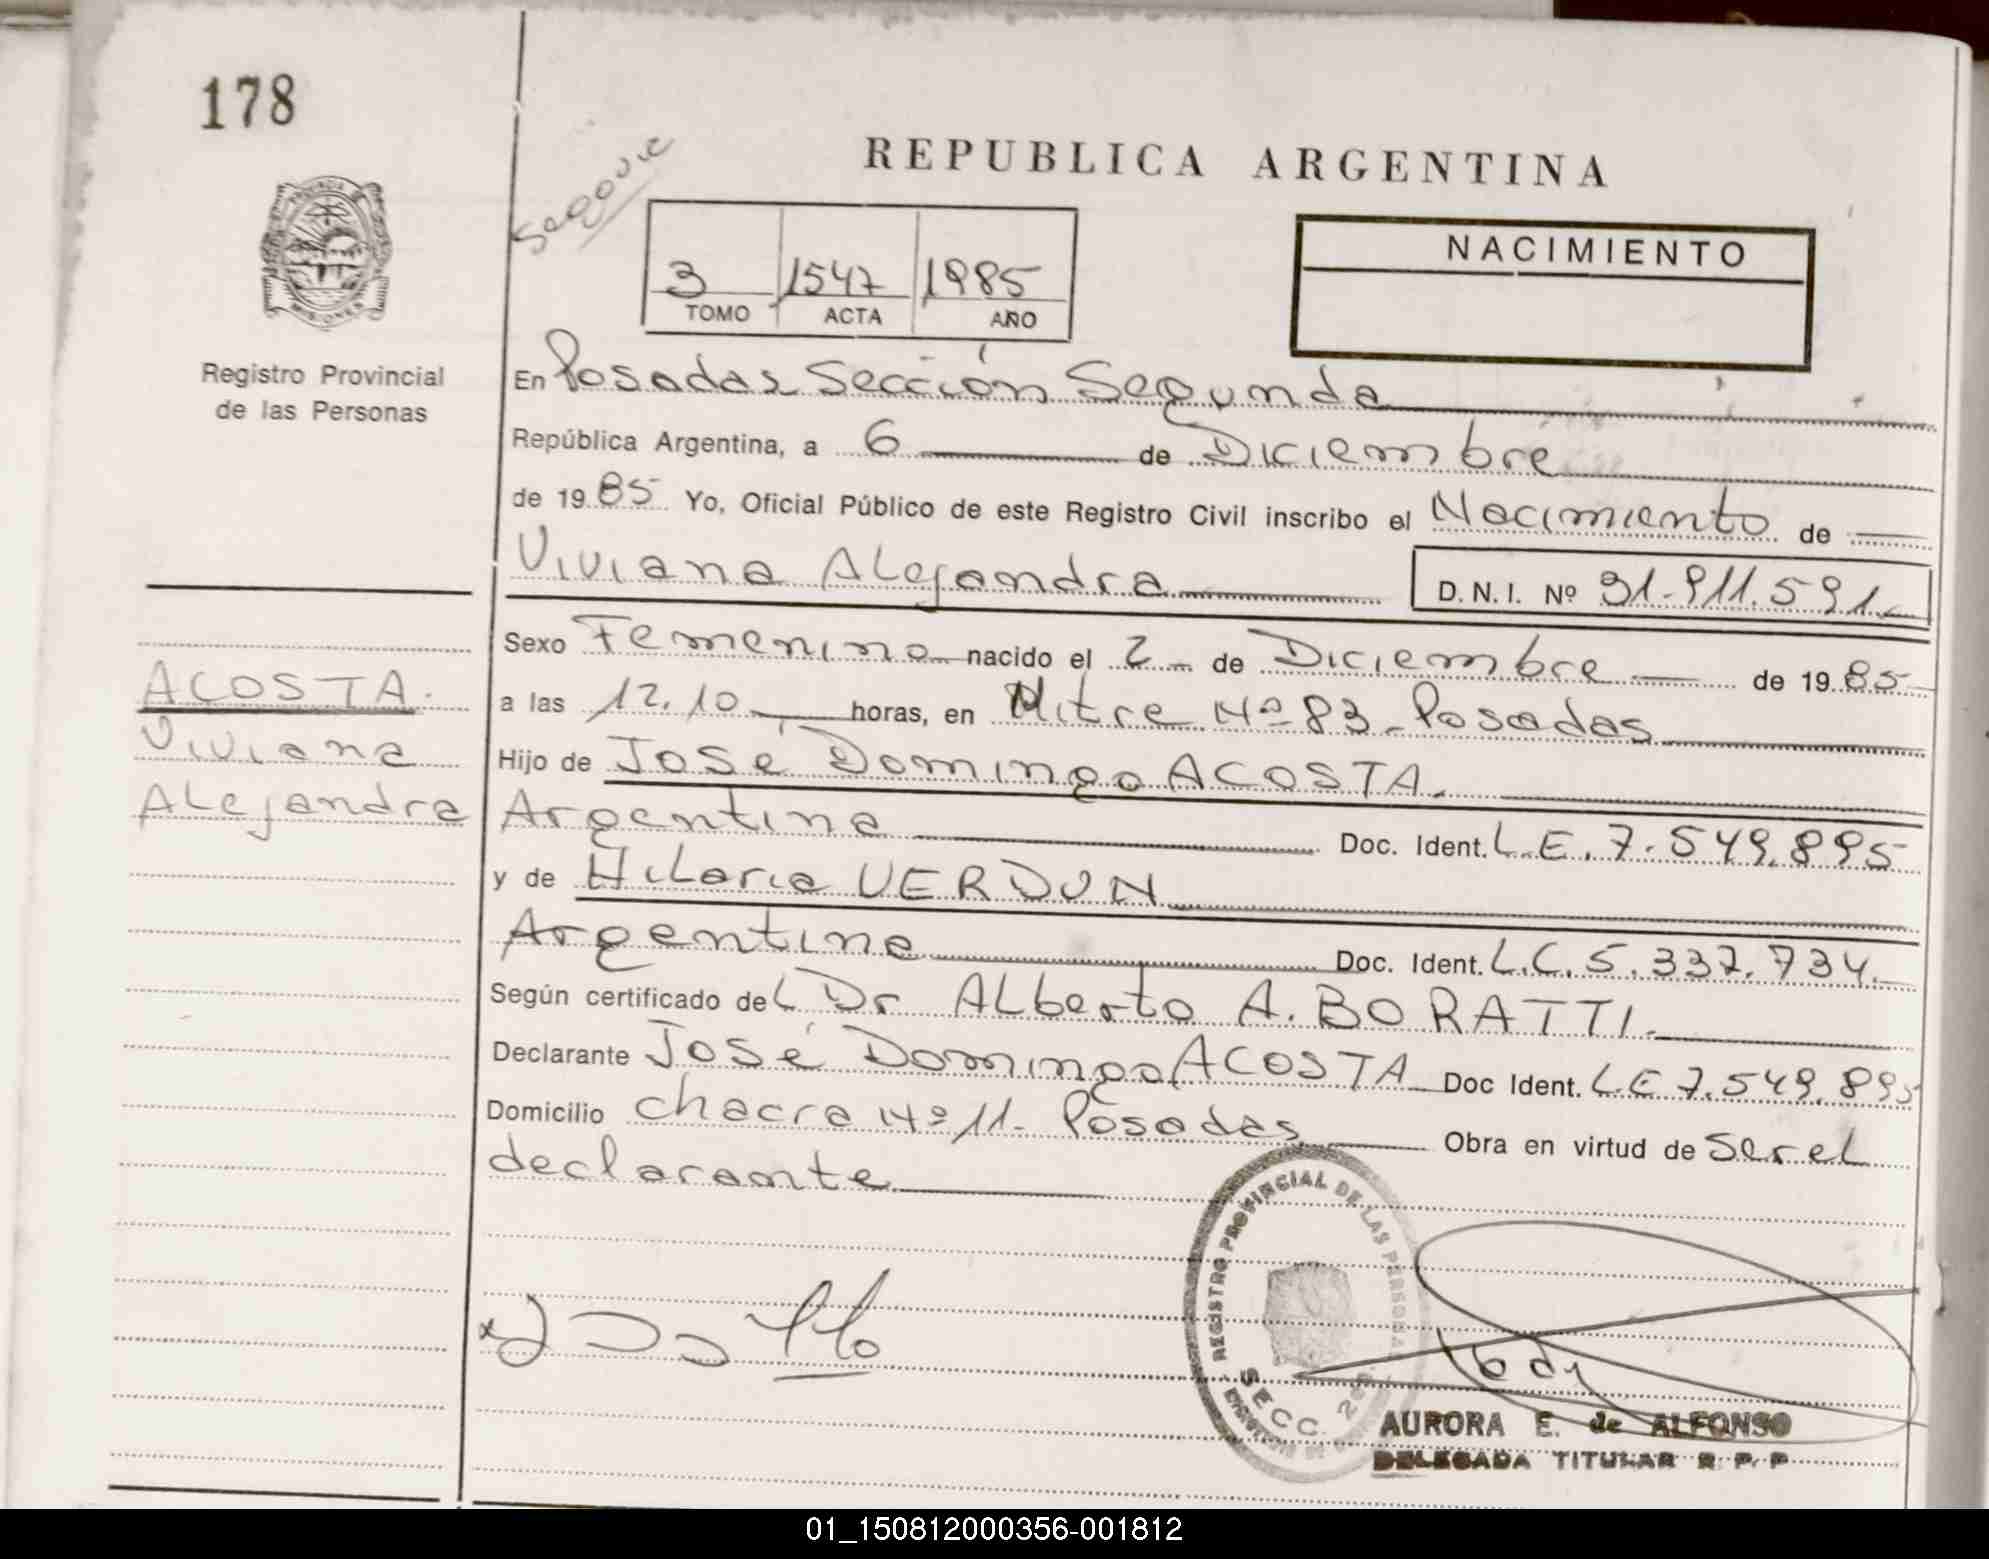 178
Segovie
REPUBLICA ARGENTINA
PROVINCIA DE
MISIONES
Registro Provincial
de las Personas
3 1547 1985
TOMO ACTA AÑO
NACIMIENTO
En Posadas Sección Segunda
República Argentina, a 6 de Diciembre
de 1985 Yo, Oficial Público de este Registro Civil inscribo el Nacimiento de
Viviana Alejandra D.N.I. Nº 31.911.591
Sexo Femenino nacido el 2 de Diciembre de 1985
ACOSTA.
Viviana
Alejandra
a las 12.10 horas, en Mitre Nº 83 - Posadas
Hijo de José Domingo ACOSTA.
Argentina Doc. Ident. L.E. 7.549.895
y de Hilaria VERDUN
Argentina Doc. Ident. L.C. 5.337.734.
Según certificado del Dr Alberto A. BORATTI.
Declarante José Domingo ACOSTA Doc Ident. L.E 7.549.895
Domicilio chacra Nº 11 - Posadas Obra en virtud de ser el
declarante
REGISTRO PROVINCIAL DE LAS PERSONAS
SECC. 2da
AURORA E. de ALFONSO
DELEGADA TITULAR R.P.P
01_150812000356-001812